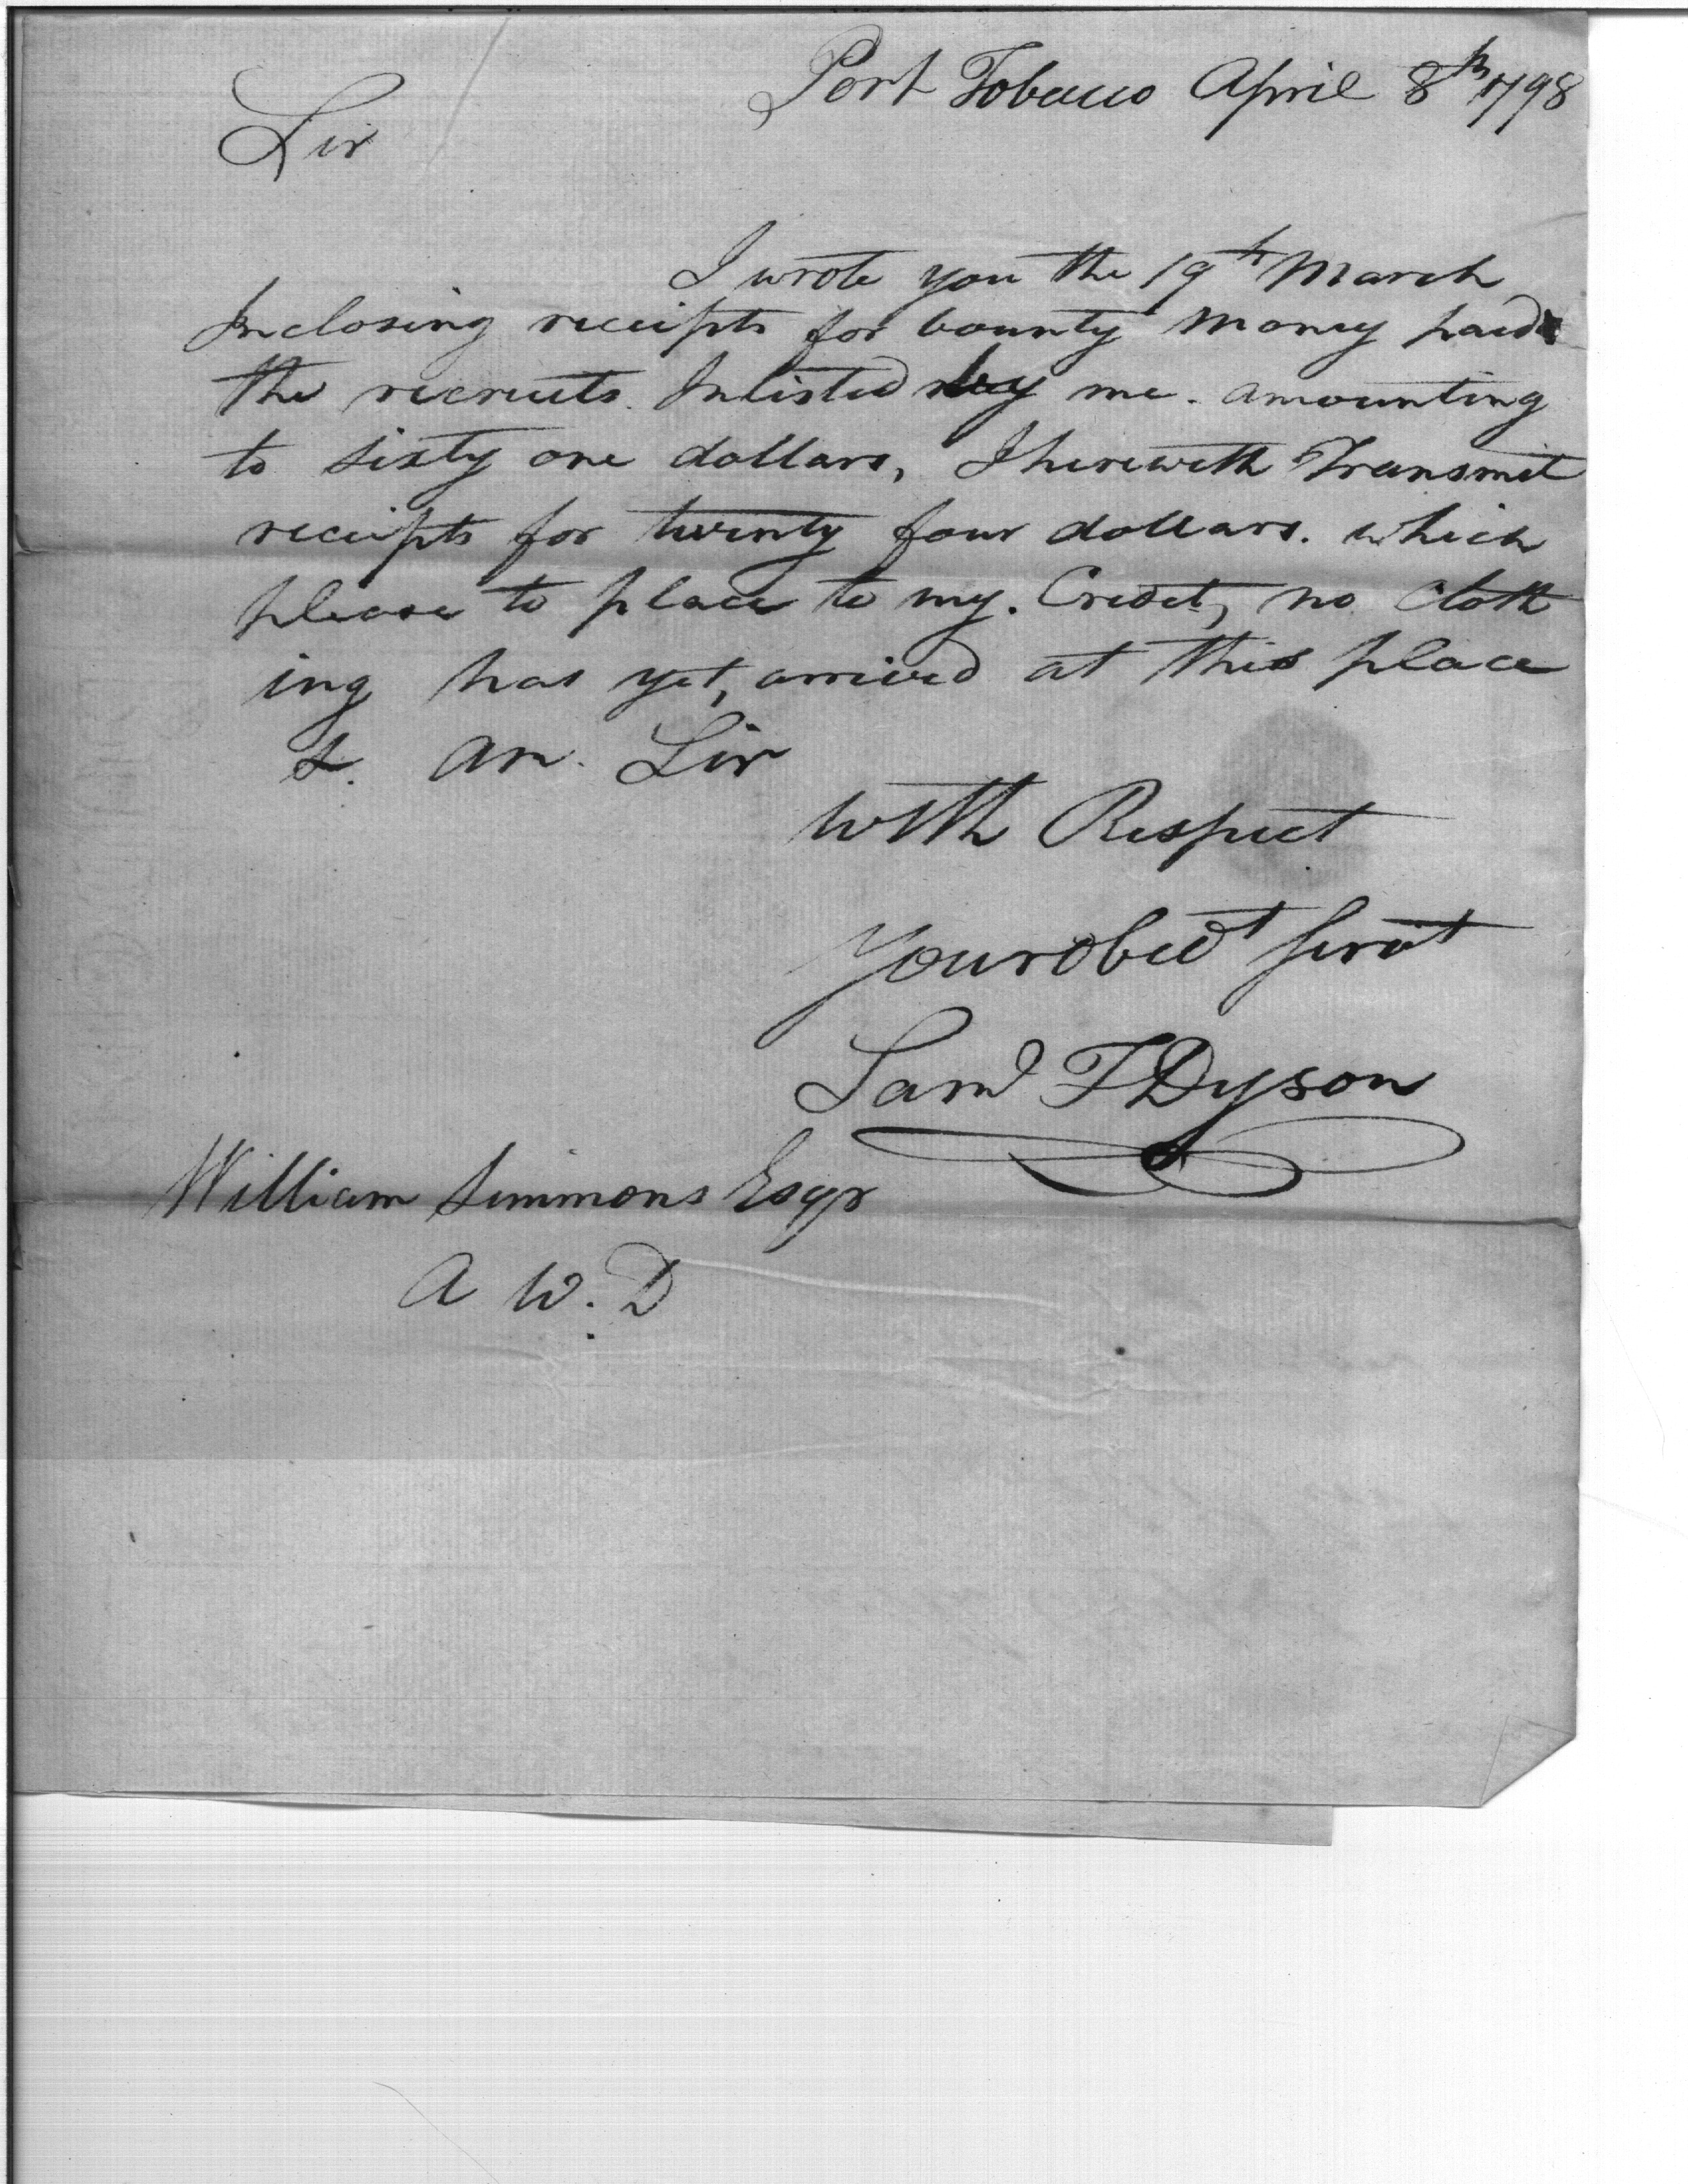 Port Tobacco April 8th 1798
Sir
I wrote you the 19th March
Inclosing receipts for bounty Money paid
the recruits Inlisted by me. amounting
to sixty one dollars, I herewith Transmit
receipts for twenty four dollars. which
please to place to my. Credit, no Cloth
ing has yet, arrived at this place
I. am. Sir
with Respect
Your obedt servt
Saml T Dyson
William Simmons Esqr
A W. D